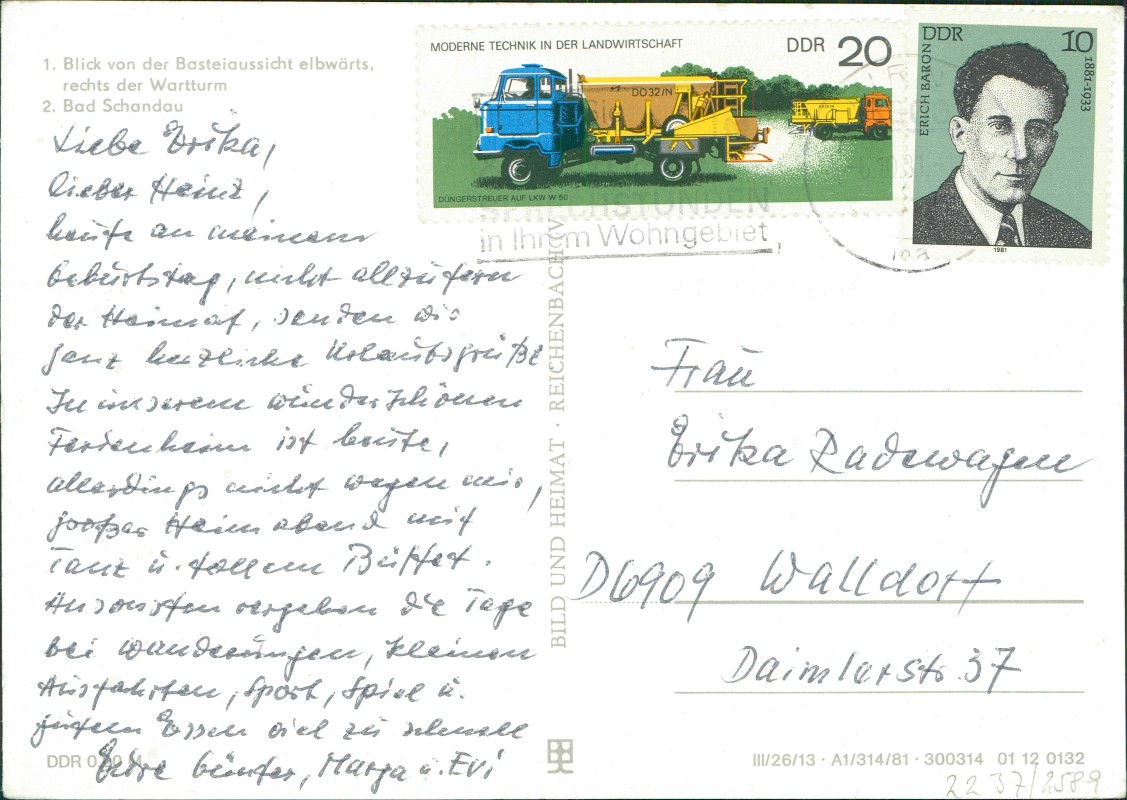 1. Blick von der Basteiaussicht elbwärts,
rechts der Wartturm
2. Bad Schandau
Liebe Erika,
lieber Heinz,
heute an meinem
Geburtstag, nicht allzufern
der Heimat, senden wir
ganz herzliche Urlaubsgrüße
In unserem wunderschönen
Ferienheim ist heute,
allerdings nicht wegen mir,
großer Heimabend mit
Tanz u. tollem Büffet.
Ansonsten vergehen die Tage
bei Wanderungen, kleinen
Ausfahrten, Sport, Spiel u.
gutem Essen viel zu schnell
Eure Günter, Marga u. Evi
DDR
BILD UND HEIMAT · REICHENBACH (V
MODERNE TECHNIK IN DER LANDWIRTSCHAFT
DDR 20
DO32/N
DÜNGERSTREUER AUF LKW W 50
DDR 10
ERICH BARON
1881-1933
1981
SPRECHSTUNDEN
in Ihrem Wohngebiet
Frau
Erika Radewagen
D6909 Walldorf
Daimlerstr. 37
III/26/13 · A1/314/81 · 300314 01 12 0132
22 37/2589